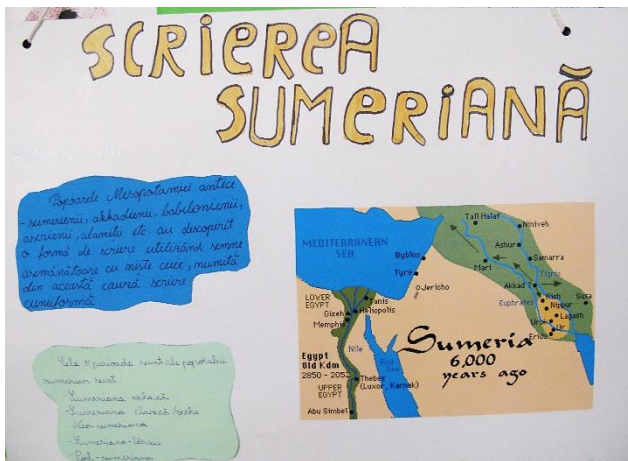 SCRIEREA
SUMERIANĂ
Popoarele Mesopotamiei antice
- sumerienii, akkadienii, babilonienii,
asirienii, elamitii etc. au descoperit
o formă de scriere utilizând semne
asemănătoare cu niște cuie, numită
din această cauză scriere
cuneiformă.
Cele 5 perioade ale poporului
sumerian sunt:
- Sumeriana arhaică
- Sumeriana clasică
- Neo-sumeriana
- Sumeriana
- Post-sumeriana
MEDITERRANEAN
SEA
Tall Halaf
Niniveh
Ashur
Samarra
Mari
Tigris
Byblos
Tyre
Jericho
Akkad ?
Euphrates
Kish
Nippur
Susa
Lagash
Uruk
Ur
Eridu
LOWER
EGYPT
Tanis
Heliopolis
Gizeh
Memphis
Nile
Red
Sea
Egypt
Old Kdm
2850 - 2052
Thebes
(Luxor, Karnak)
UPPER
EGYPT
Abu Simbel
Sumeria
6,000
years ago